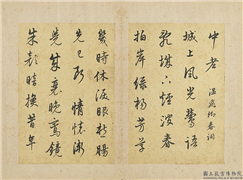 城上風光鶯語
亂城下煙波春
拍岸綠楊芳草
幾時休淚眼愁腸
先已斷情懷漸
覺成衰晚鸞鏡
朱顏暗換昔年
國立故宮博物院